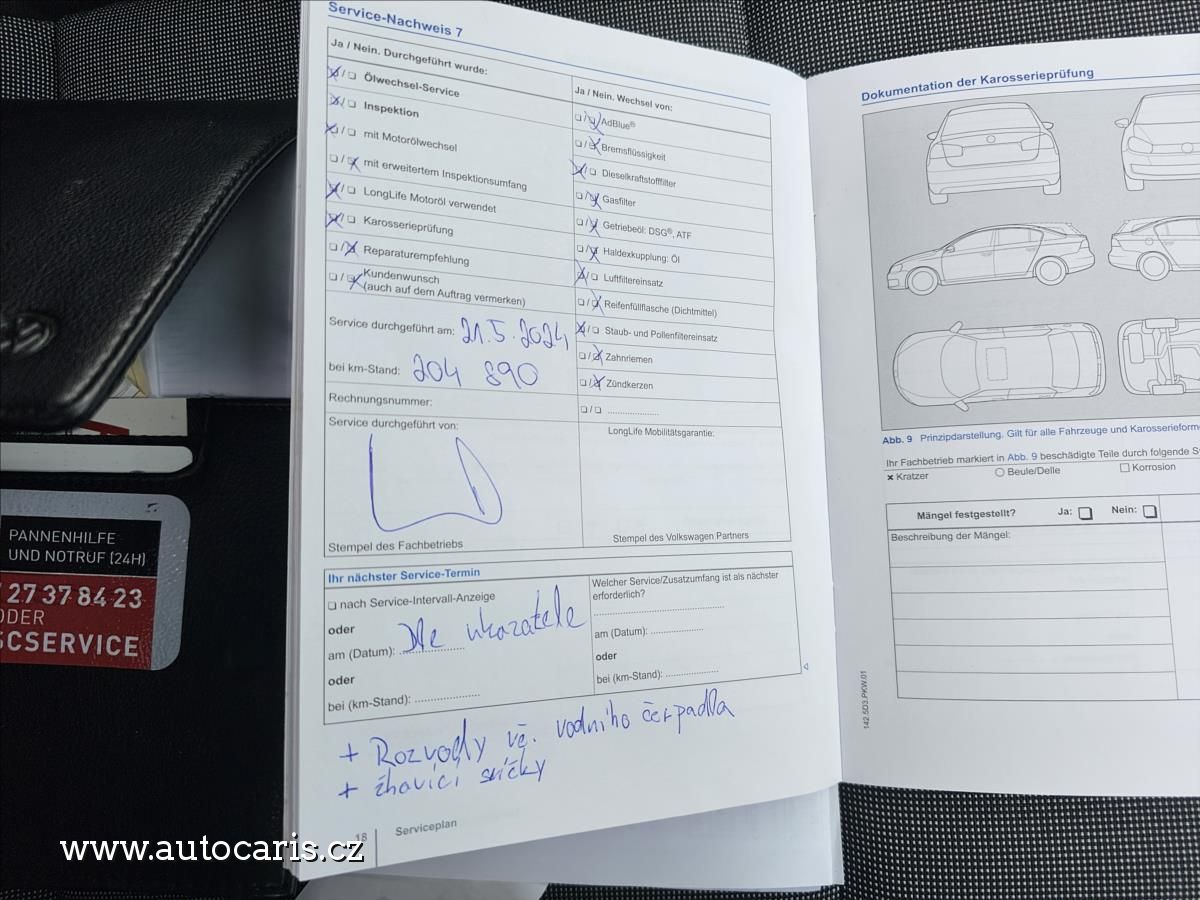 Service-Nachweis 7
Ja / Nein. Durchgeführt wurde:
☒/❏ Ölwechsel-Service
☒/❏ Inspektion
☒/❏ mit Motorölwechsel
❏/☒ mit erweitertem Inspektionsumfang
☒/❏ LongLife Motoröl verwendet
☒/❏ Karosserieprüfung
❏/☒ Reparaturempfehlung
❏/☒ Kundenwunsch
(auch auf dem Auftrag vermerken)
Service durchgeführt am: 21.5.2024
bei km-Stand: 204 890
Rechnungsnummer:
Service durchgeführt von:
Stempel des Fachbetriebs
Ja / Nein. Wechsel von:
❏/☒ AdBlue®
❏/☒ Bremsflüssigkeit
☒/❏ Dieselkraftstofffilter
❏/☒ Gasfilter
❏/☒ Getriebeöl: DSG®, ATF
❏/☒ Haldexkupplung: Öl
☒/❏ Luftfiltereinsatz
❏/☒ Reifenfüllflasche (Dichtmittel)
☒/❏ Staub- und Pollenfiltereinsatz
❏/☒ Zahnriemen
❏/☒ Zündkerzen
❏/❏ .....................
LongLife Mobilitätsgarantie:
Stempel des Volkswagen Partners
Ihr nächster Service-Termin
❏ nach Service-Intervall-Anzeige
oder
am (Datum): Dle ukazatele
oder
bei (km-Stand): .....................
Welcher Service/Zusatzumfang ist als nächster
erforderlich?
am (Datum): .....................
oder
bei (km-Stand): .....................
+ Rozvody vč. vodního čerpadla
+ žhavící svíčky
18 Serviceplan
Dokumentation der Karosserieprüfung
Abb. 9 Prinzipdarstellung. Gilt für alle Fahrzeuge und Karosserieforme
Ihr Fachbetrieb markiert in Abb. 9 beschädigte Teile durch folgende
✖ Kratzer ○ Beule/Delle ☐ Korrosion
Mängel festgestellt? Ja: ❏ Nein: ❏
Beschreibung der Mängel:
142.5D3.PKW.01
PANNENHILFE
UND NOTRUF (24H)
27 37 84 23
ODER
SCSERVICE
www.autocaris.cz